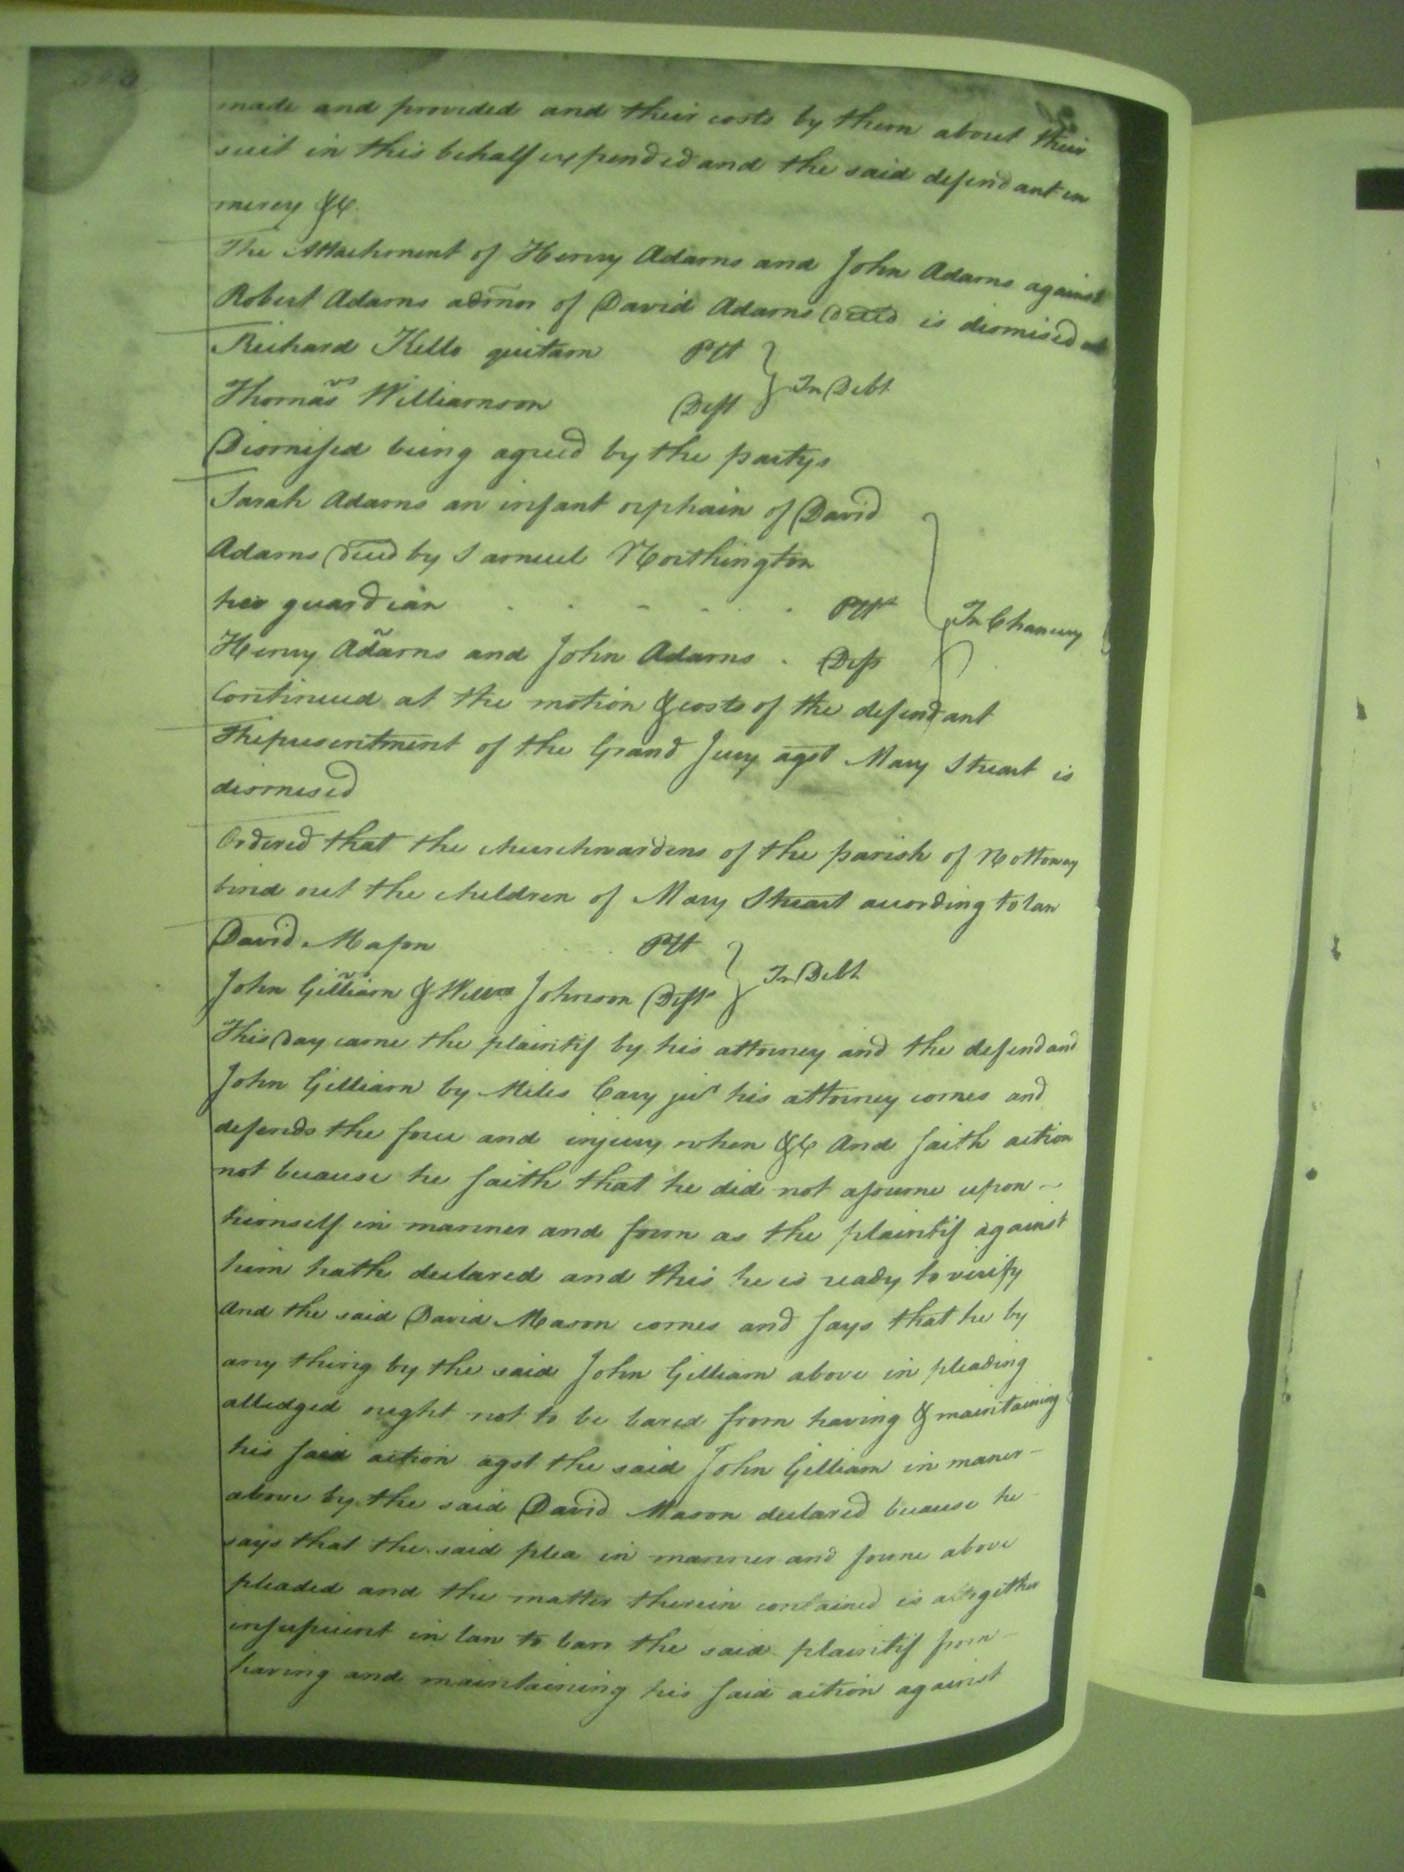 made and provided and their costs by them about their
suit in this behalf expended and the said defendant in
mercy &c
The Attachment of Henry Adams and John Adams against
Robert Adams admor of David Adams decd is dismised
Richard Kello quitam Plt
vs In Debt
Thomas Williamson Deft
Dismissed being agreed by the partys
Sarah Adams an infant orphain of David
Adams decd by Samuel Northington
her guardian . . - . . . Plt
In Chancery
Henry Adams and John Adams . Defs
Continued at the motion & costs of the defendant
The presentment of the Grand Jury agst Mary Stuart is
dismised
Ordered that the churchwardens of the parish of Nottoway
bind out the children of Mary Stuart acording to law
David Mason Plt
vs In Debt
John Gilliam & Willm Johnson Defts
This day came the plaintif by his attorney and the defendand
John Gilliam by Miles Cary junr his attorney comes and
defends the force and injury when &c And saith action
not because he saith that he did not assume upon -
himself in manner and form as the plaintif against
him hath declared and this he is ready to verify
And the said David Mason comes and says that he by
any thing by the said John Gilliam above in pleading
alledged ought not to be bared from having & maintaining
his said action agst the said John Gilliam in maner -
above by the said David Mason declared because he -
says that the said plea in manner and forme above
pleaded and the matter therein contained is altogether
insuficient in law to barr the said plaintif from -
having and maintaining his said action against